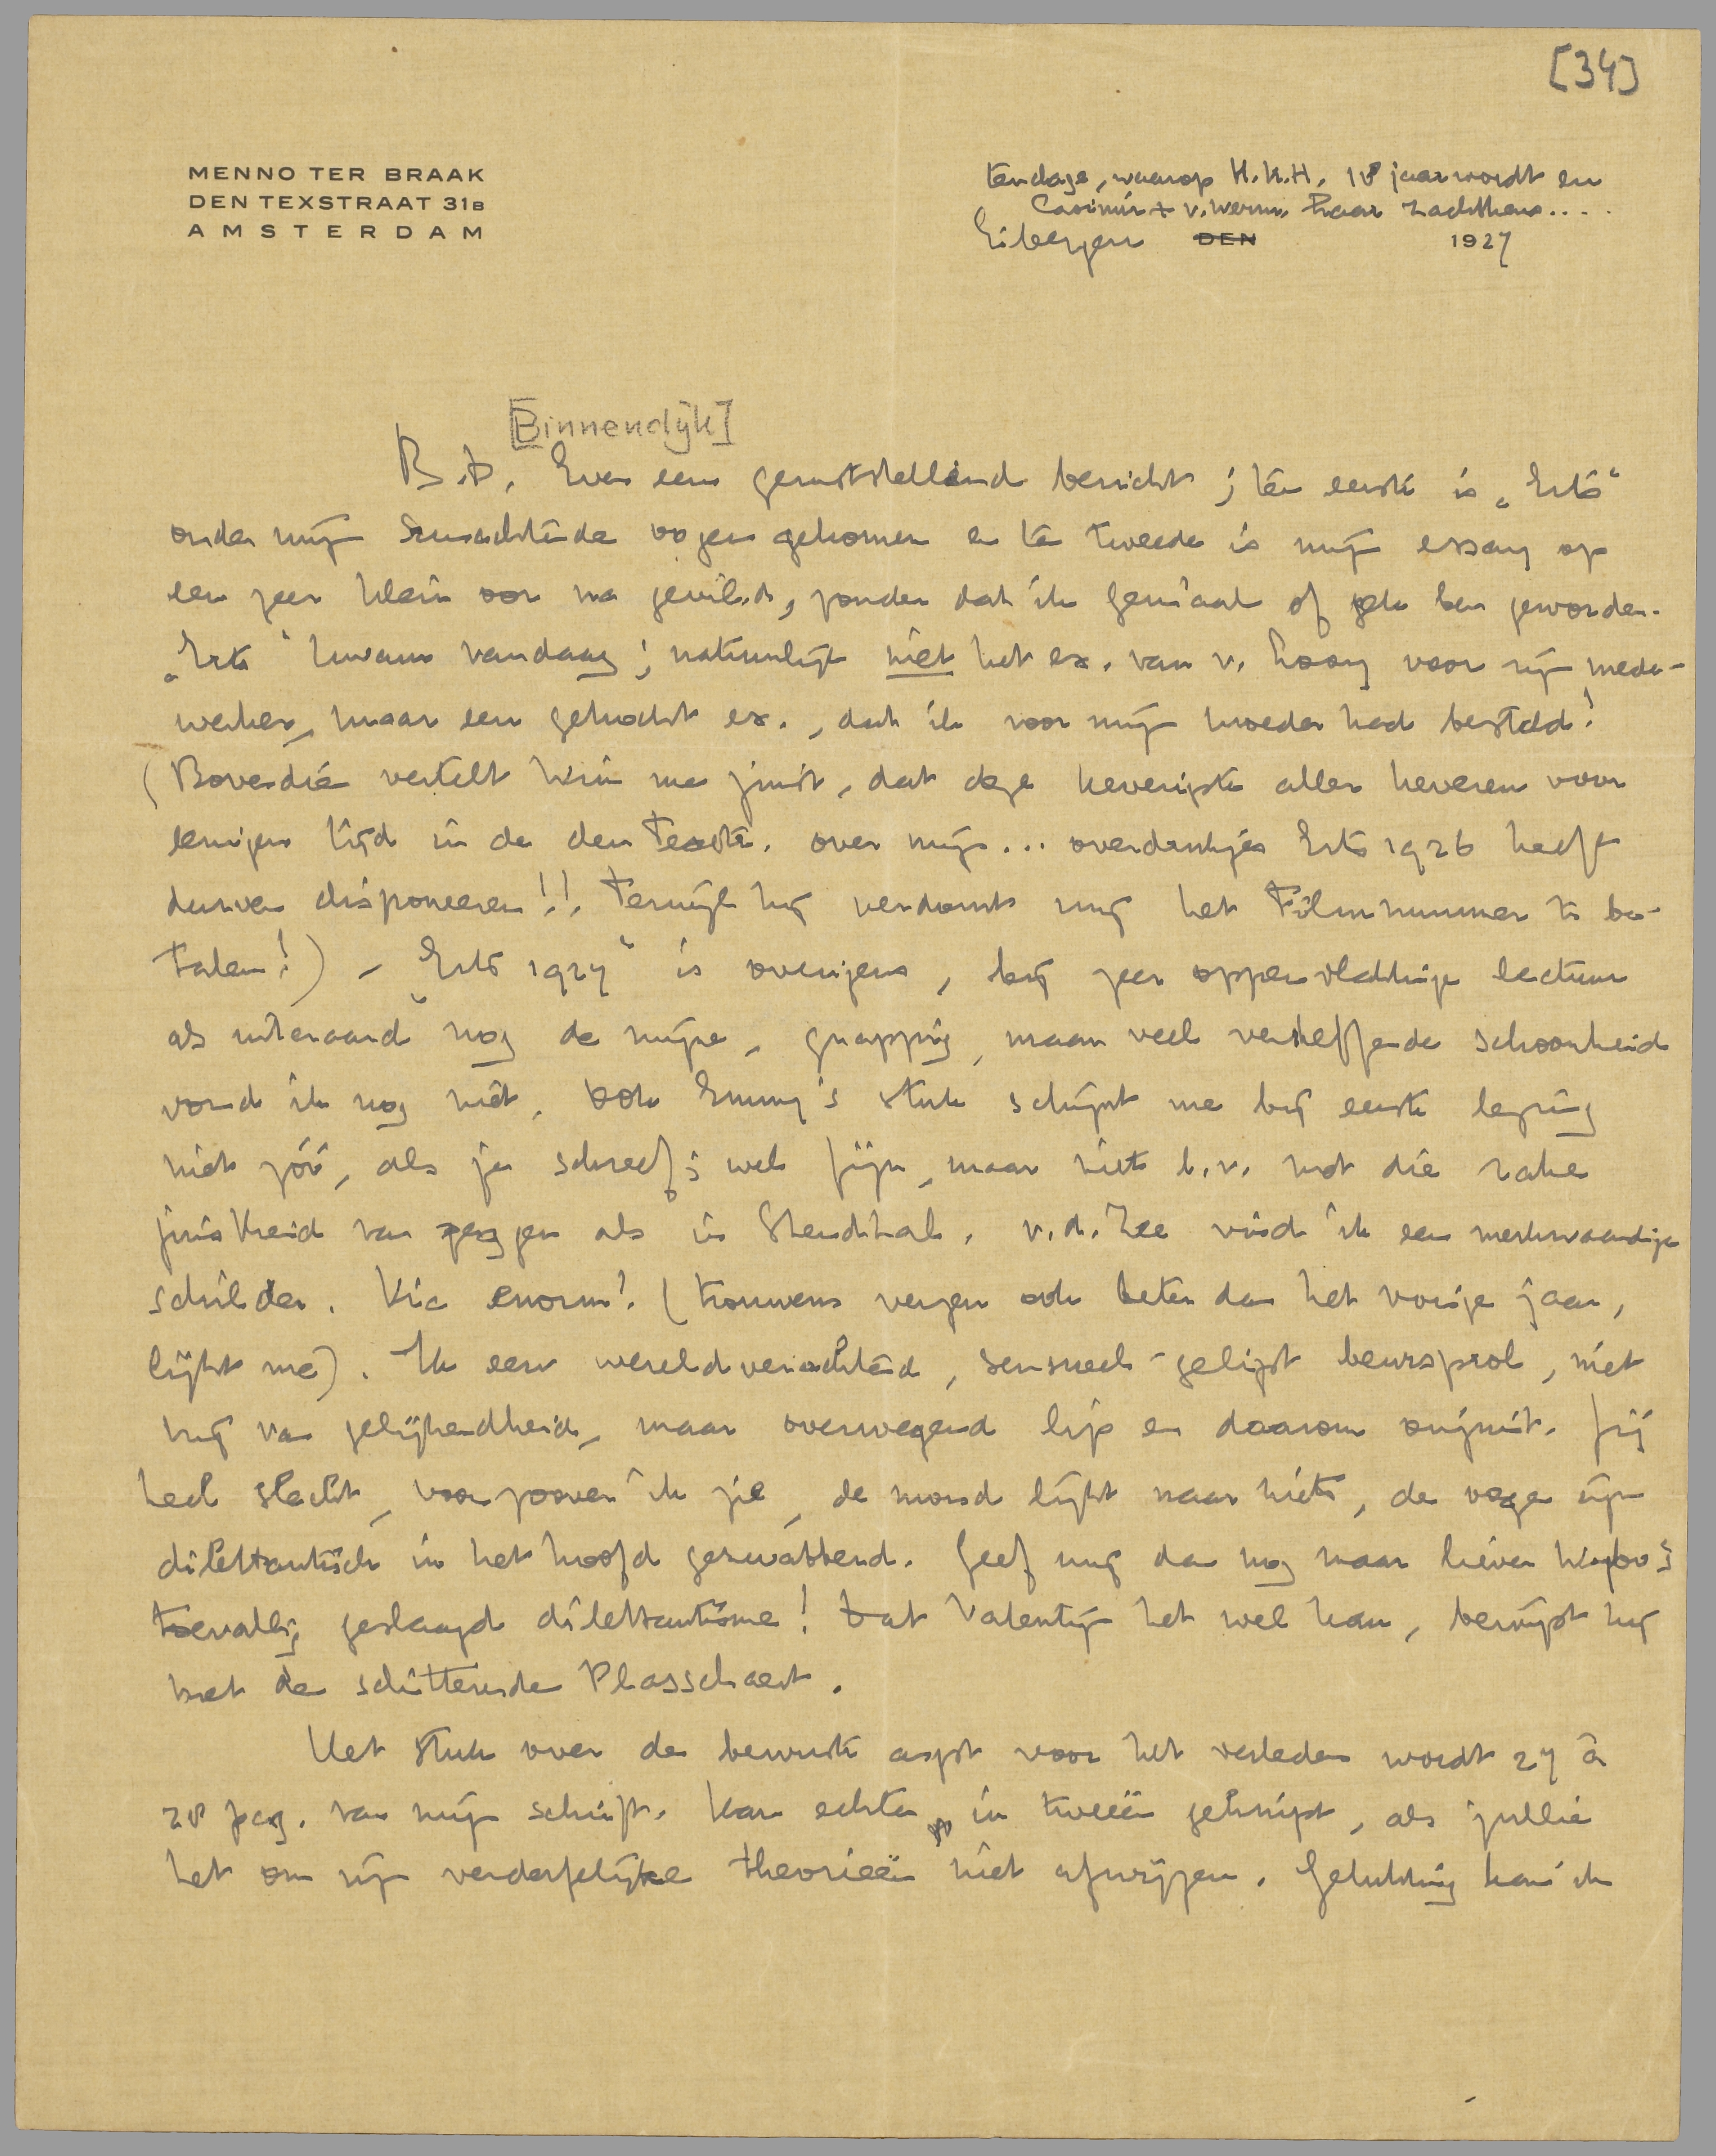 [34]
MENNO TER BRAAK
DEN TEXSTRAAT 31B
AMSTERDAM
tendage, waarop H.K.H. 18 jaar wordt en
Casimir + v. Werm. haar zachtkens....
Eibergen DEN 1927
[Binnendijk]
B.D. Even een geruststellend bericht; ten eerste is „Erts"
onder mijn smachtende oogen gekomen en ten tweede is mijn essay op
een zeer klein oor na gevild, zonder dat ik geniaal of gek ben geworden.
„Erts" kwam vandaag; natuurlijk niet het ex. van v. Looy voor zijn mede-
werker, maar een gekocht ex., dat ik voor mijn moeder had besteld!
(Bovendien vertelt Wim me juist, dat deze keverigste aller keveren voor
eenigen tijd in de den Texstr. over mijn... overdrukjes Erts 1926 heeft
durven disponeeren!!, terwijl hij verdomt mij het Filmnummer te be-
talen!) - „Erts 1927" is overigens, bij zeer oppervlakkige lectuur
als uiteraard nog de mijne, grappig, maar veel verheffende schoonheid
vond ik nog niet. Ook Emmy's stuk schijnt me bij eerste lezing
niet zóó, als je schreef; wel fijn, maar niets b.v. met die rake
juistheid van zeggen als in Stendhal. v.d. Zee vind ik een merkwaardige
schilder. Vic enorm! (trouwens verzen ook beter dan het vorige jaar,
lijkt me). Ik een wereldverachtend, sensueel-gelipt beursprol, niet
vrij van gelijkendheid, maar overwegend lip en daarom onjuist. Jij
heel slecht, voorzoover ik zie, de mond lijkt naar niets, de oogen zijn
dilettantisch in het hoofd gekwabbend. Geef mij dan nog maar liever
toevallig geslaagd dilettantisme! Dat Valentijn het wel kan, bewijst hij
met de schitterende Plasschaert.
Het stuk over de bewuste angst voor het verleden wordt 27 à
28 pag. van mijn schrift. Kan echter in tweeën geknipt, als jullie
het om zijn verderfelijke theorieën niet afwijzen. Gelukkig kan ik